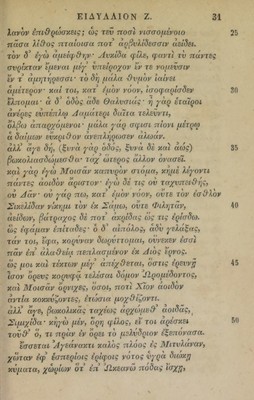 ΕΙΔΥΛΛΙΟΝ Ζ. 31
λανὸν ἐπιθρώσκεις; ὥς τευ ποσὶ νισσομένοιο 25
πᾶσα λίθος πταίοισα ποτ' ἀρβυλίδεσσιν ἀείδει.
τὸν δ' ἐγὼ ἀμείφθην· Λυκίδα φίλε, φαντὶ τὺ πάντες
συρίκταν ἔμεναι μέγ' ὑπείροχον ἔν τε νομεῦσιν
ἔν τ' ἀμητήρεσσι· τὸ δὴ μάλα θυμὸν ἰαίνει
ἁμέτερον· καί τοι, κατ' ἐμὸν νόον, ἰσοφαρίσδεν 30
ἔλπομαι· ἁ δ' ὁδὸς ἅδε Θαλυσιάς· ἦ γὰρ ἑταῖροι
ἀνέρες εὐπέπλῳ Δαμάτερι δαῖτα τελεῦντι,
ὄλβω ἀπαρχόμενοι· μάλα γάρ σφισι πίονι μέτρῳ
ἁ δαίμων εὔκριθον ἀνεπλήρωσεν ἀλωάν.
ἀλλ' ἄγε δή, (ξυνὰ γὰρ ὁδός, ξυνὰ δὲ καὶ ἀώς) 35
βωκολιασδώμεσθα· τάχ' ὥτερος ἄλλον ὀνασεῖ.
καὶ γὰρ ἐγὼ Μοισᾶν καπυρὸν στόμα, κἠμὲ λέγοντι
πάντες ἀοιδὸν ἄριστον· ἐγὼ δέ τις οὐ ταχυπειθής,
οὐ Δᾶν· οὐ γάρ πω, κατ' ἐμὸν νόον, οὔτε τὸν ἐσθλὸν
Σικελίδαν νίκημι τὸν ἐκ Σάμω, οὔτε Φιλητᾶν, 40
ἀείδων, βάτραχος δὲ ποτ' ἀκρίδας ὥς τις ἐρίσδω.
ὣς ἐφάμαν ἐπίταδες· ὁ δ' αἰπόλος, ἁδὺ γελάξας,
τάν τοι, ἔφα, κορύναν δωρύττομαι, οὕνεκεν ἐσσὶ
πᾶν ἐπ' ἀλαθείᾳ πεπλασμένον ἐκ Διὸς ἔρνος.
ὥς μοι καὶ τέκτων μέγ' ἀπέχθεται, ὅστις ἐρευνῇ 45
ἶσον ὄρευς κορυφᾷ τελέσαι δόμον Ὠρομέδοντος,
καὶ Μοισᾶν ὄρνιχες, ὅσοι, ποτὶ Χῖον ἀοιδὸν
ἀντία κοκκύζοντες, ἐτώσια μοχθίζοντι.
ἀλλ' ἄγε, βωκολικᾶς ταχέως ἀρχώμεθ' ἀοιδᾶς,
Σιμιχίδα· κἠγὼ μέν, ὅρη, φίλος, εἴ τοι ἀρέσκει 50
τοῦθ' ὅ, τι πρὰν ἐν ὄρει τὸ μελύδριον ἐξεπόνασα.
Ἔσσεται Ἀγεάνακτι καλὸς πλόος ἐς Μιτυλάναν,
χὤταν ἐφ' ἑσπερίοις ἐρίφοις νότος ὑγρὰ διώκῃ
κύματα, χὠρίων ὅτ' ἐπ' Ὠκεανῷ πόδας ἴσχῃ,